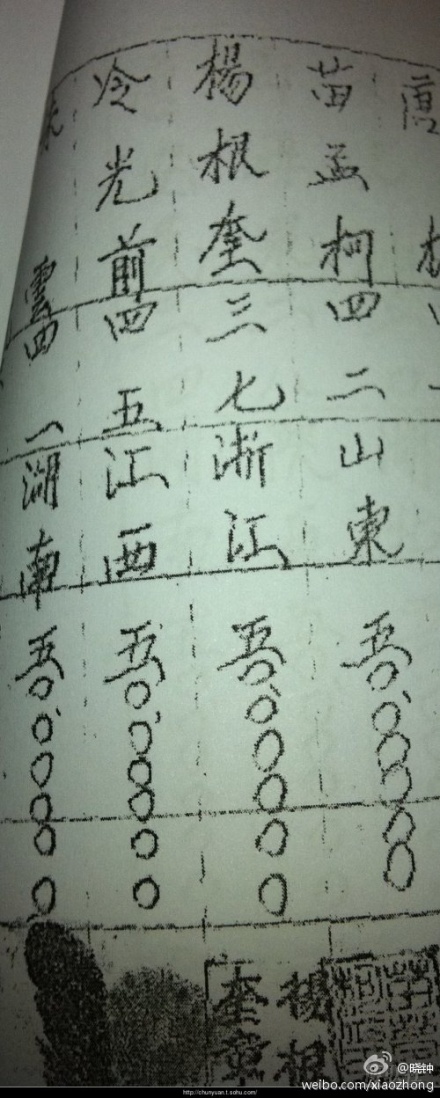 唐
苗孟柯 四二 山東 五〇〇〇〇〇〇
楊根奎 三七 浙江 五〇〇〇〇〇〇
冷光前 四五 江西 五〇〇〇〇〇〇
雲 四一 湖南 五〇〇〇〇〇〇
楊根
奎章
@晓钟
weibo.com/xiaozhong
http://chunyuan.t.sohu.com/